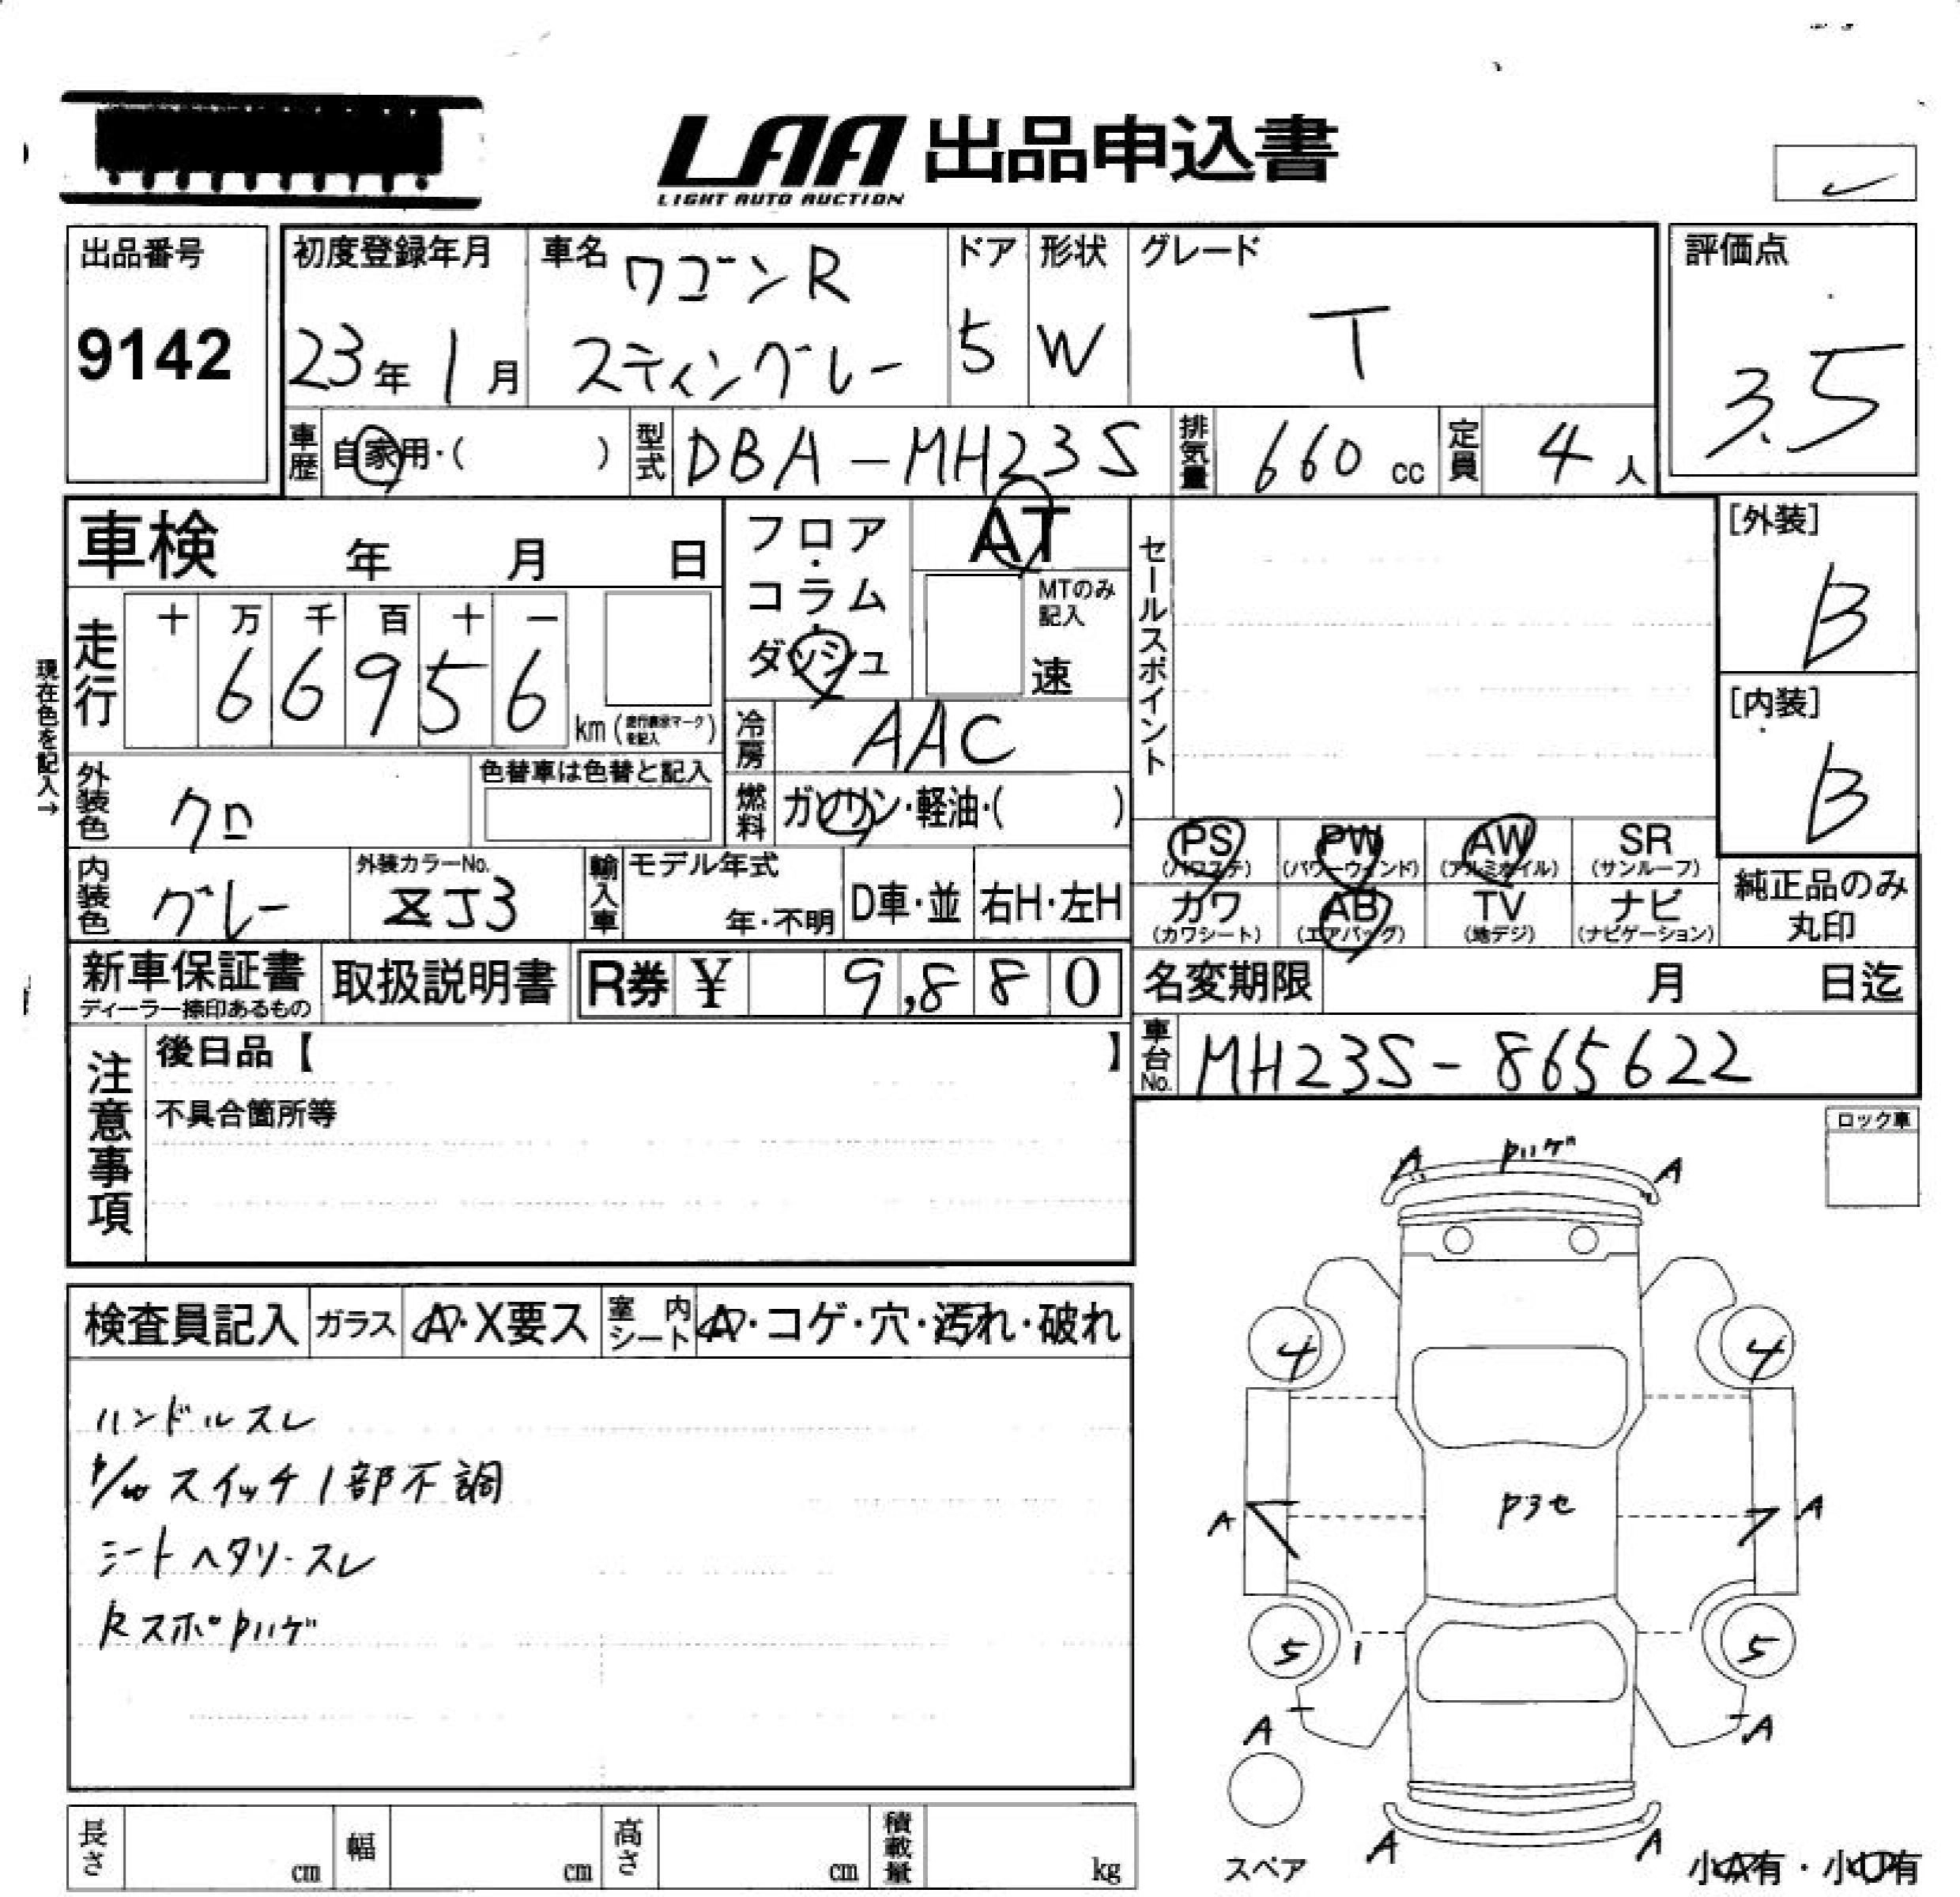 LAA 出品申込書
LIGHT AUTO AUCTION
出品番号
9142
初度登録年月
23年 1月
車名 ワゴンR
スティングレー
ドア
5
形状
W
グレード
T
評価点
3.5
車歴 自家用・( )
型式 DBA-MH23S
排気量 660 cc
定員 4人
車検 年 月 日
フロア・コラム・ダッシュ
AT
MTのみ記入
速
セールスポイント
[外装]
B
[内装]
B
走行
十 万 千 百 十 一
6 6 9 5 6
km (走行表示マークを記入)
現在色を記入→
冷房 AAC
燃料 ガソリン・軽油・( )
外装色 クロ
色替車は色替と記入
内装色 グレー
外装カラーNo.
ZJ3
輸入車
モデル年式
年・不明
D車・並
右H・左H
PS (パワステ)
PW (パワーウィンド)
AW (アルミホイル)
SR (サンルーフ)
カワ (カワシート)
AB (エアバッグ)
TV (地デジ)
ナビ (ナビゲーション)
純正品のみ
丸印
新車保証書
ディーラー捺印あるもの
取扱説明書
R券 ¥ 9,880
名変期限 月 日迄
車台No. MH23S-865622
注意事項
後日品【 】
不具合箇所等
ロック車
検査員記入
ガラス A・X要ス
室内シート A・コゲ・穴・汚れ・破れ
ハンドルスレ
P/W スイッチ1部不調
シートヘタリ・スレ
RスポPハゲ
A Pハゲ A
4 4
A Pヨセ A
5 1 5
A A
スペア
A A
小A有・小U有
長さ cm
幅 cm
高さ cm
積載量 kg